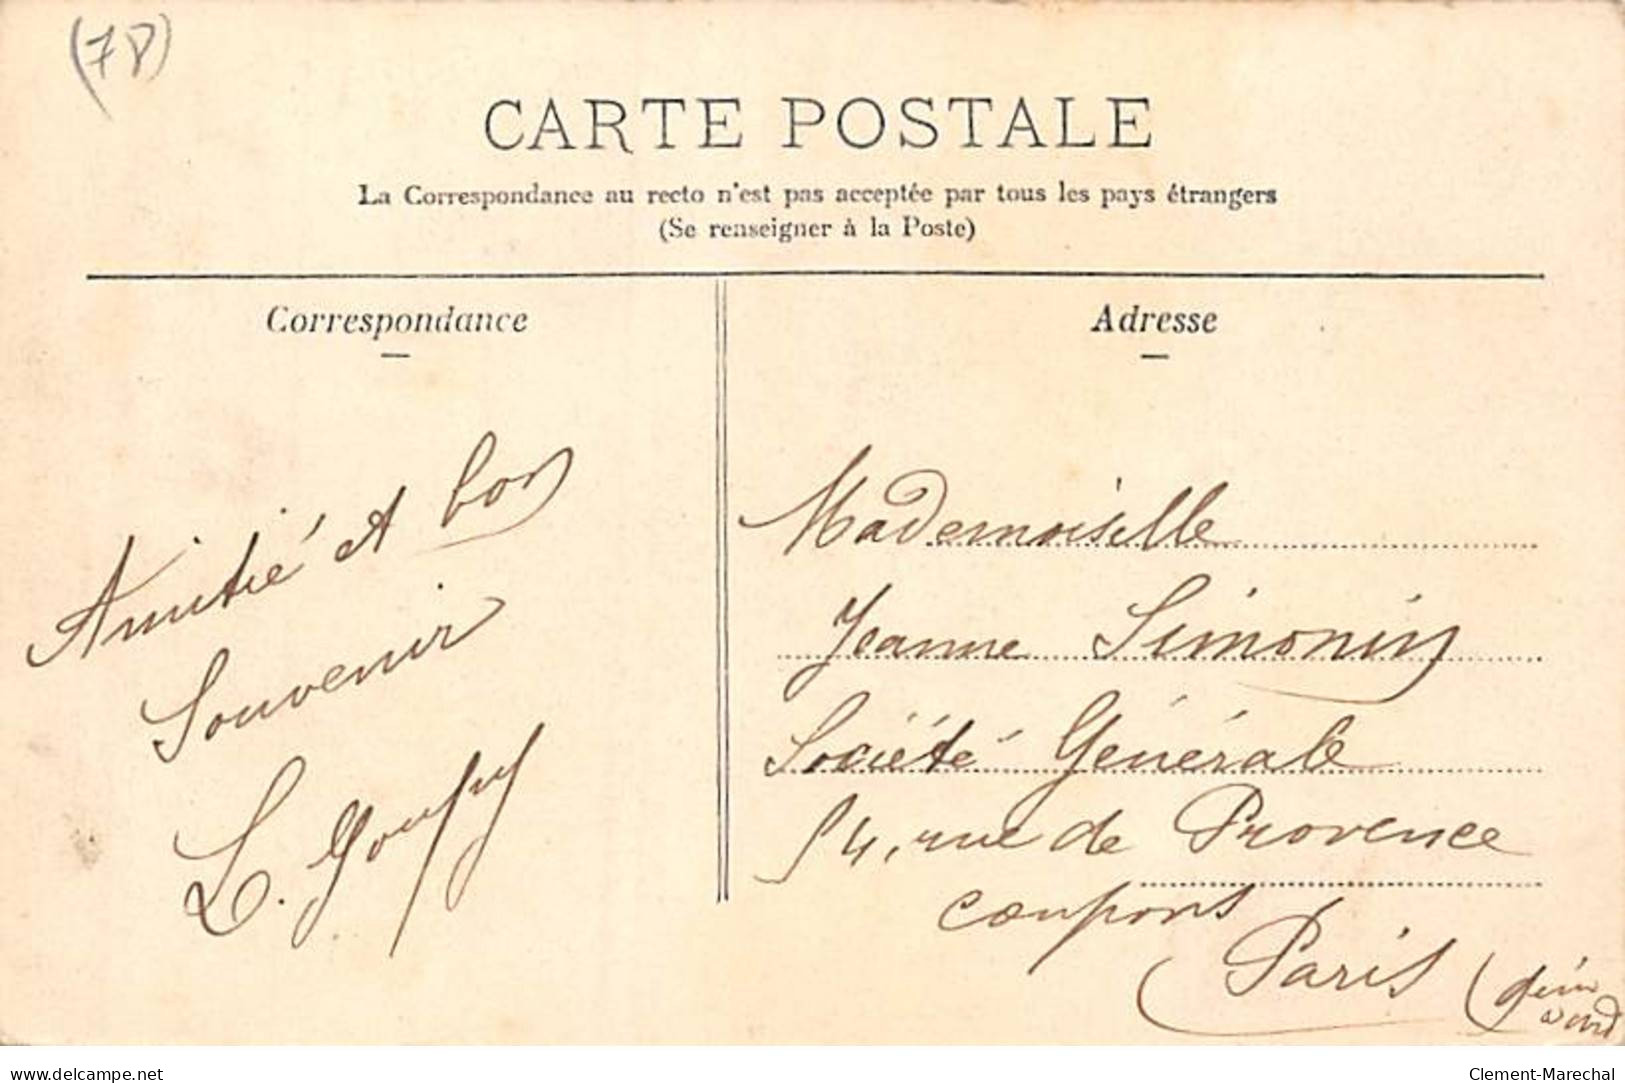 (78)
CARTE POSTALE
La Correspondance au recto n'est pas acceptée par tous les pays étrangers
(Se renseigner à la Poste)
Correspondance
Amitié et bon
Souvenir
L.
Adresse
Mademoiselle
Jeanne Simonin
Société Générale
54, rue de Provence
coupons
Paris
delcampe.net
Clement-Marechal